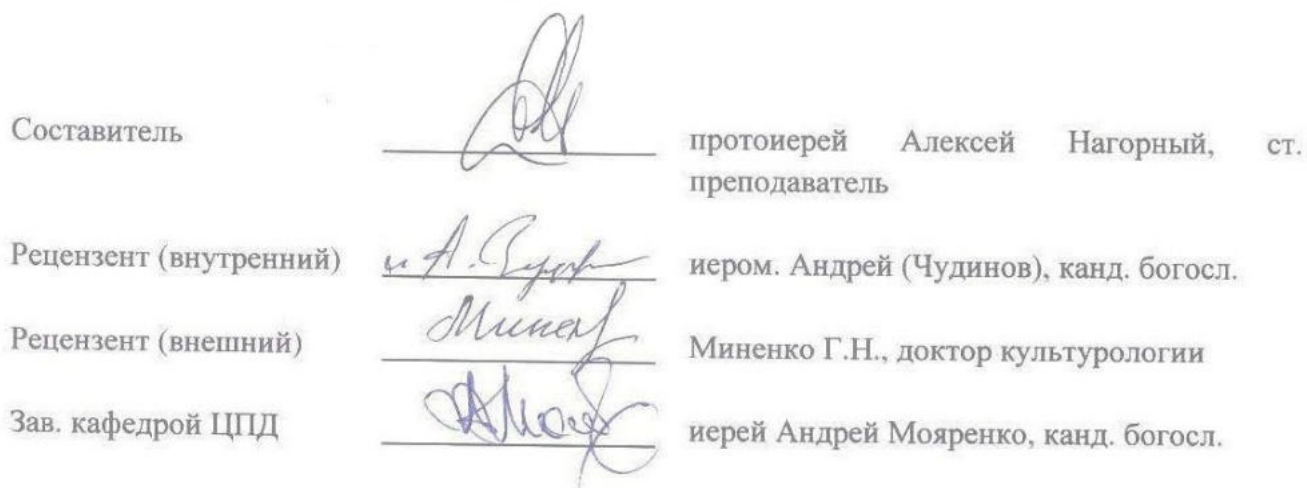 Составитель протоиерей Алексей Нагорный, ст.
преподаватель
Рецензент (внутренний) и А. иером. Андрей (Чудинов), канд. богосл.
Рецензент (внешний) Миненко Г.Н., доктор культурологии
Зав. кафедрой ЦПД иерей Андрей Мояренко, канд. богосл.